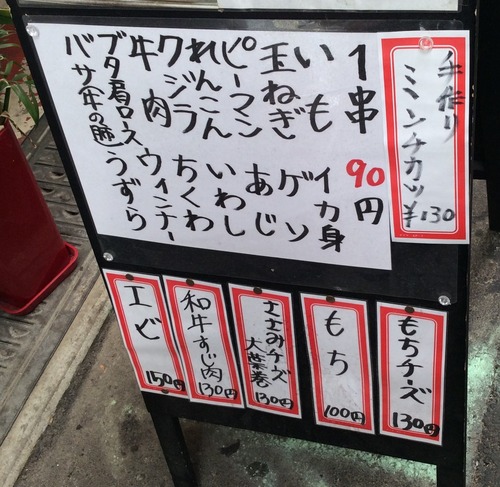 手作り
ミンチカツ
¥130
1串 90円
いも イカ身
玉ねぎ ゲソ
ピーマン あじ
れんこん いわし
クジラ ちくわ
牛肉 ウインナー
ブタ肩ロース うずら
バサ(牛の肺)
もちチーズ
130円
もち
100円
ささみチーズ
大葉巻
130円
和牛すじ肉
130円
エビ
150円